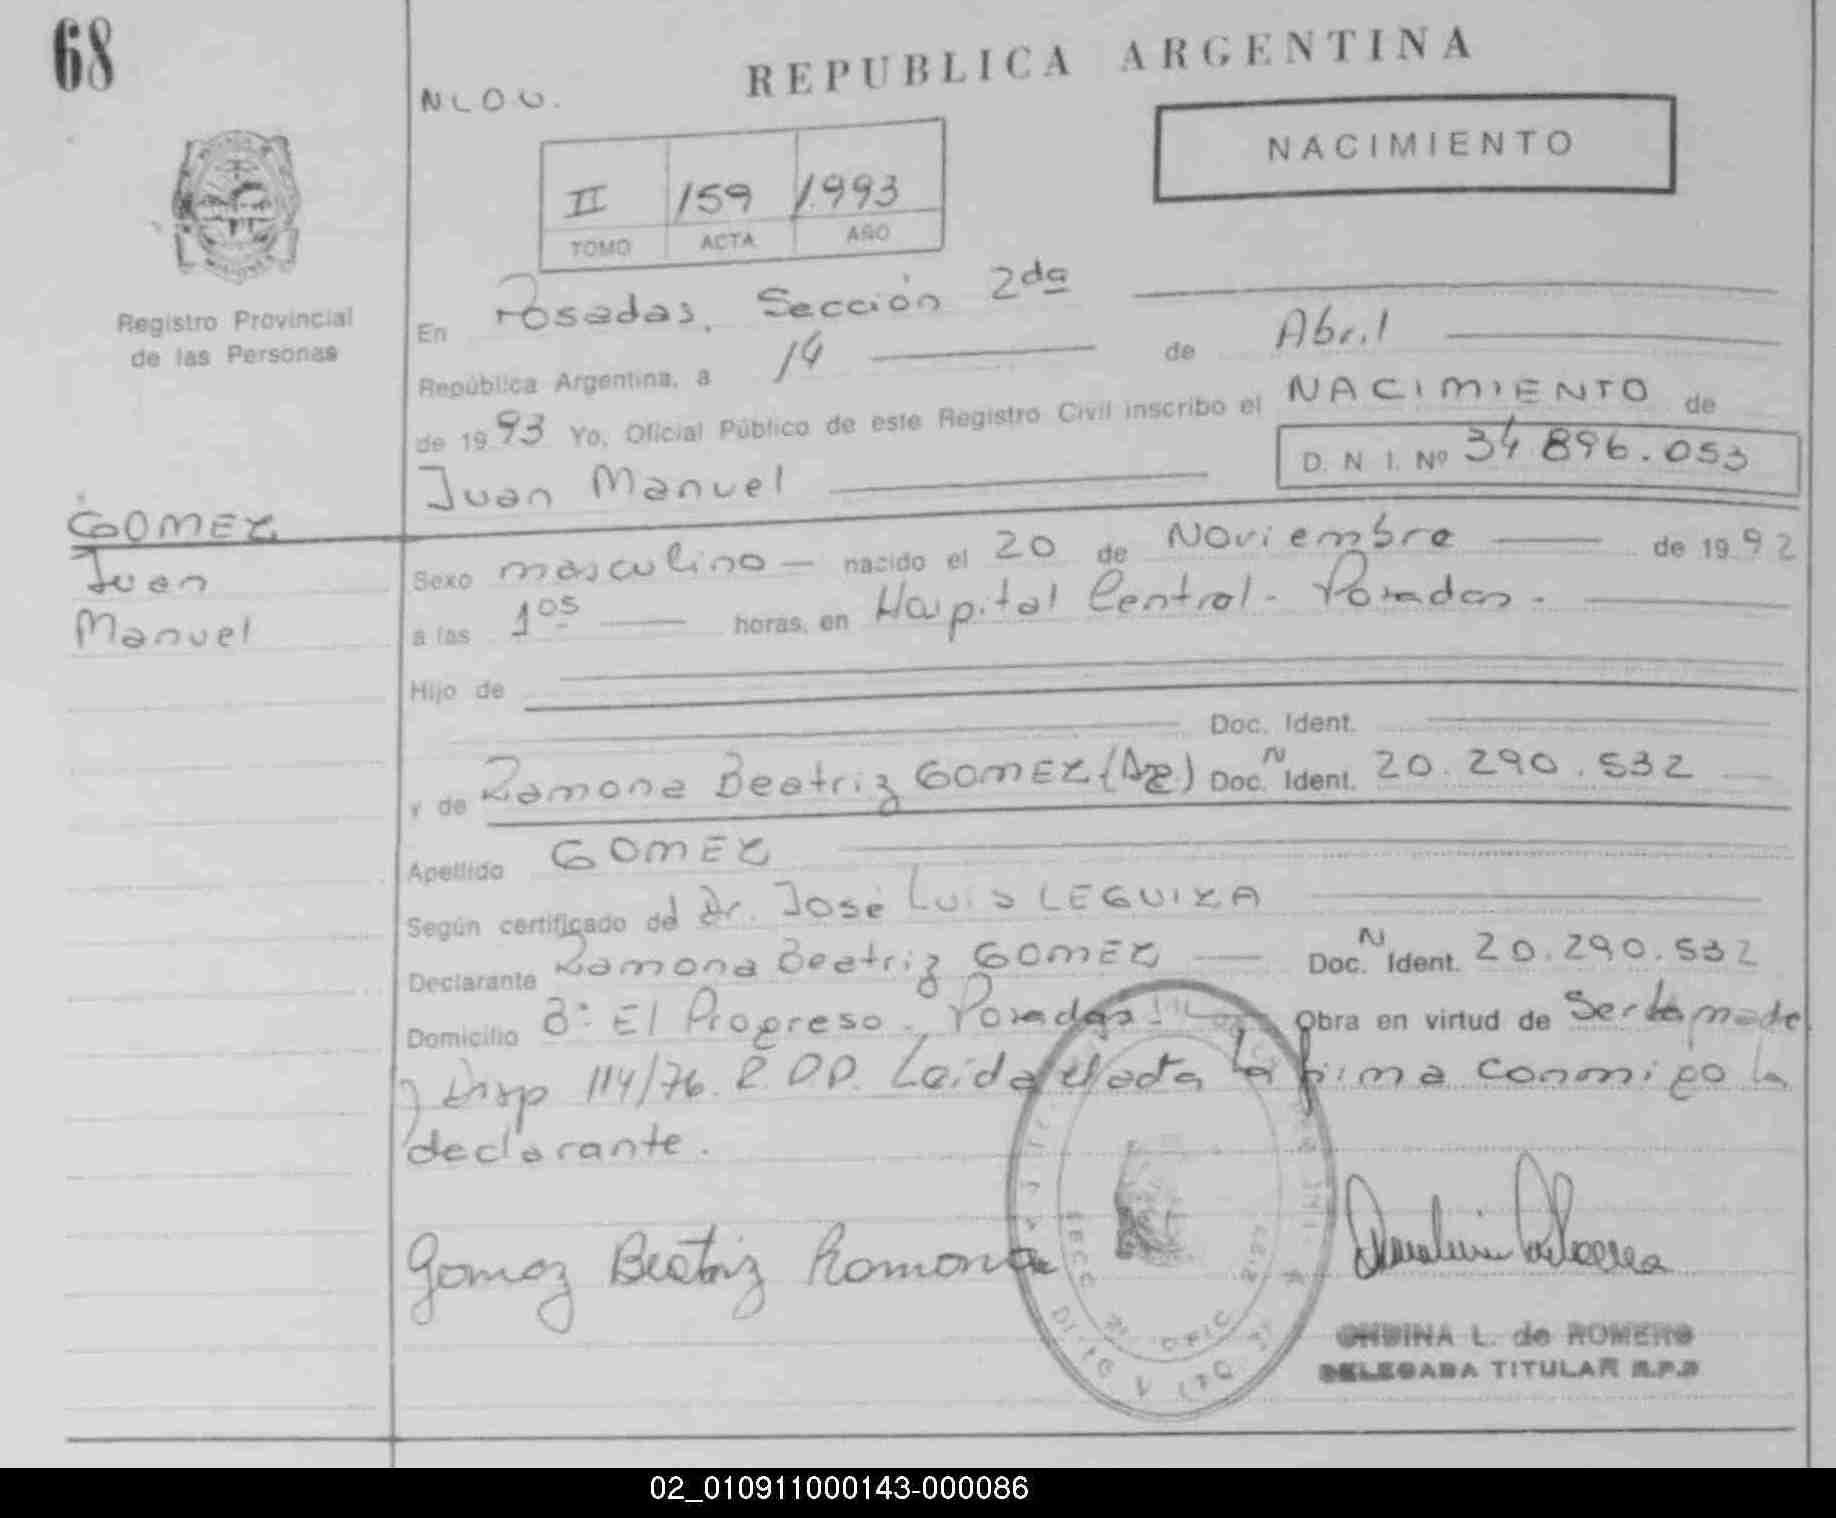 68
REPUBLICA ARGENTINA
N L O U.
NACIMIENTO
II 159 1.993
TOMO ACTA AÑO
Registro Provincial
de las Personas
En Posadas, Sección 2da
República Argentina, a 14 de Abril
de 19 93 Yo, Oficial Público de este Registro Civil inscribo el NACIMIENTO de
Juan Manuel D. N I. Nº 34 896.053
GOMEZ
Juan
Manuel
Sexo masculino — nacido el 20 de Noviembre — de 19 92
a las 1 05 — horas, en Hospital Central - Posadas.
Hijo de
Doc. Ident.
y de Ramona Beatriz GOMEZ (Arg.) Doc. N Ident. 20.290.532
Apellido GOMEZ
Según certificado del Dr. José Luis LEGUIZA
Declarante Ramona Beatriz GOMEZ — Doc. N Ident. 20.290.532
Domicilio Bº El Progreso - Posadas Obra en virtud de
Disp 114/76. R.P.P. Leida el acta la firma conmigo la
declarante.
Gomez Beatriz Ramona
ONDINA L. de ROMERO
DELEGADA TITULAR R.P.P
02_010911000143-000086